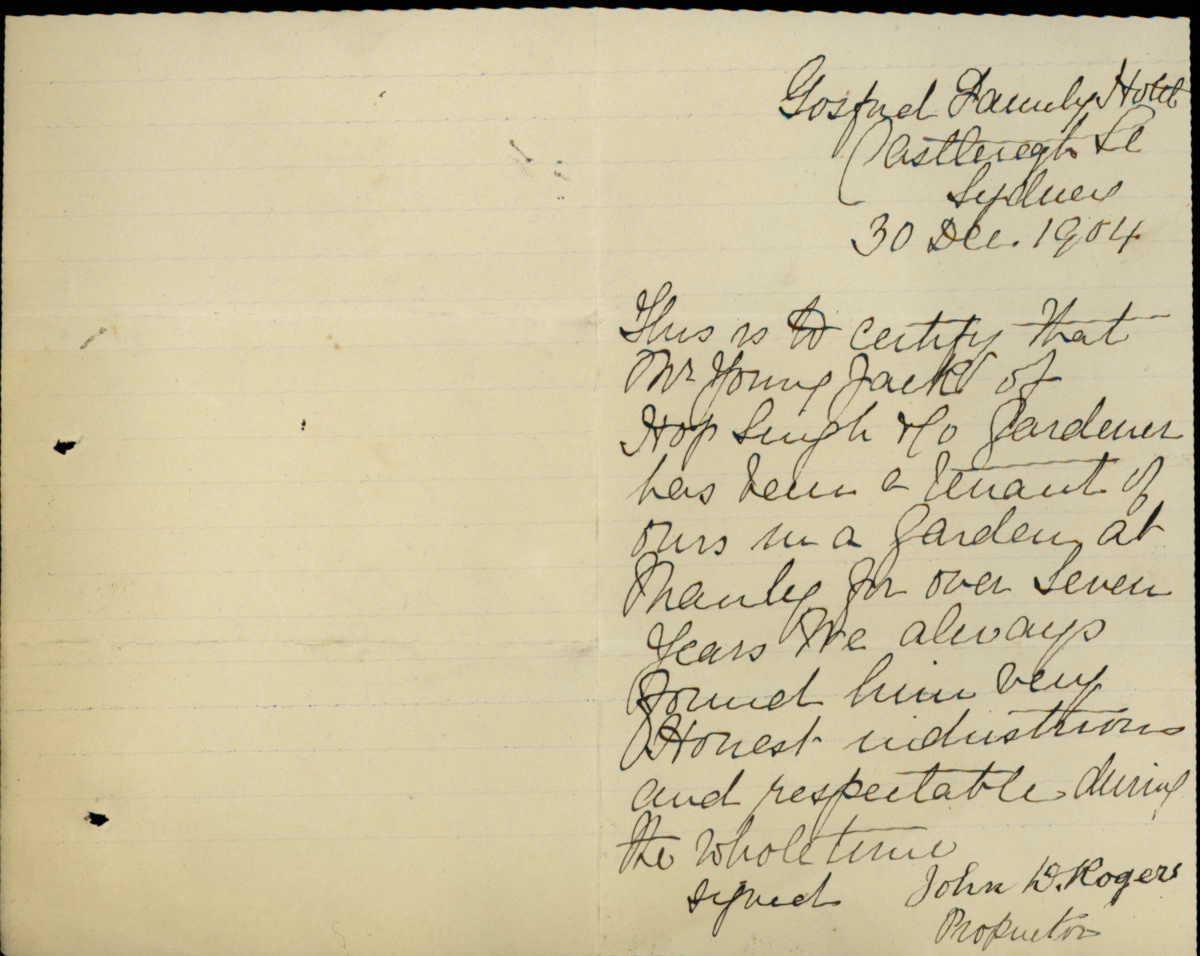 Gosford Family Hotel
Castlereagh St
Sydney
30 Dec. 1904
This is to certify that
Mr Young Jack of
Hop Singh & Co Gardener
has been a tenant of
ours in a Garden at
Manly for over Seven
Years We always
found him very
Honest industrious
and respectable during
the whole time
signed John W. Rogers
Proprietor